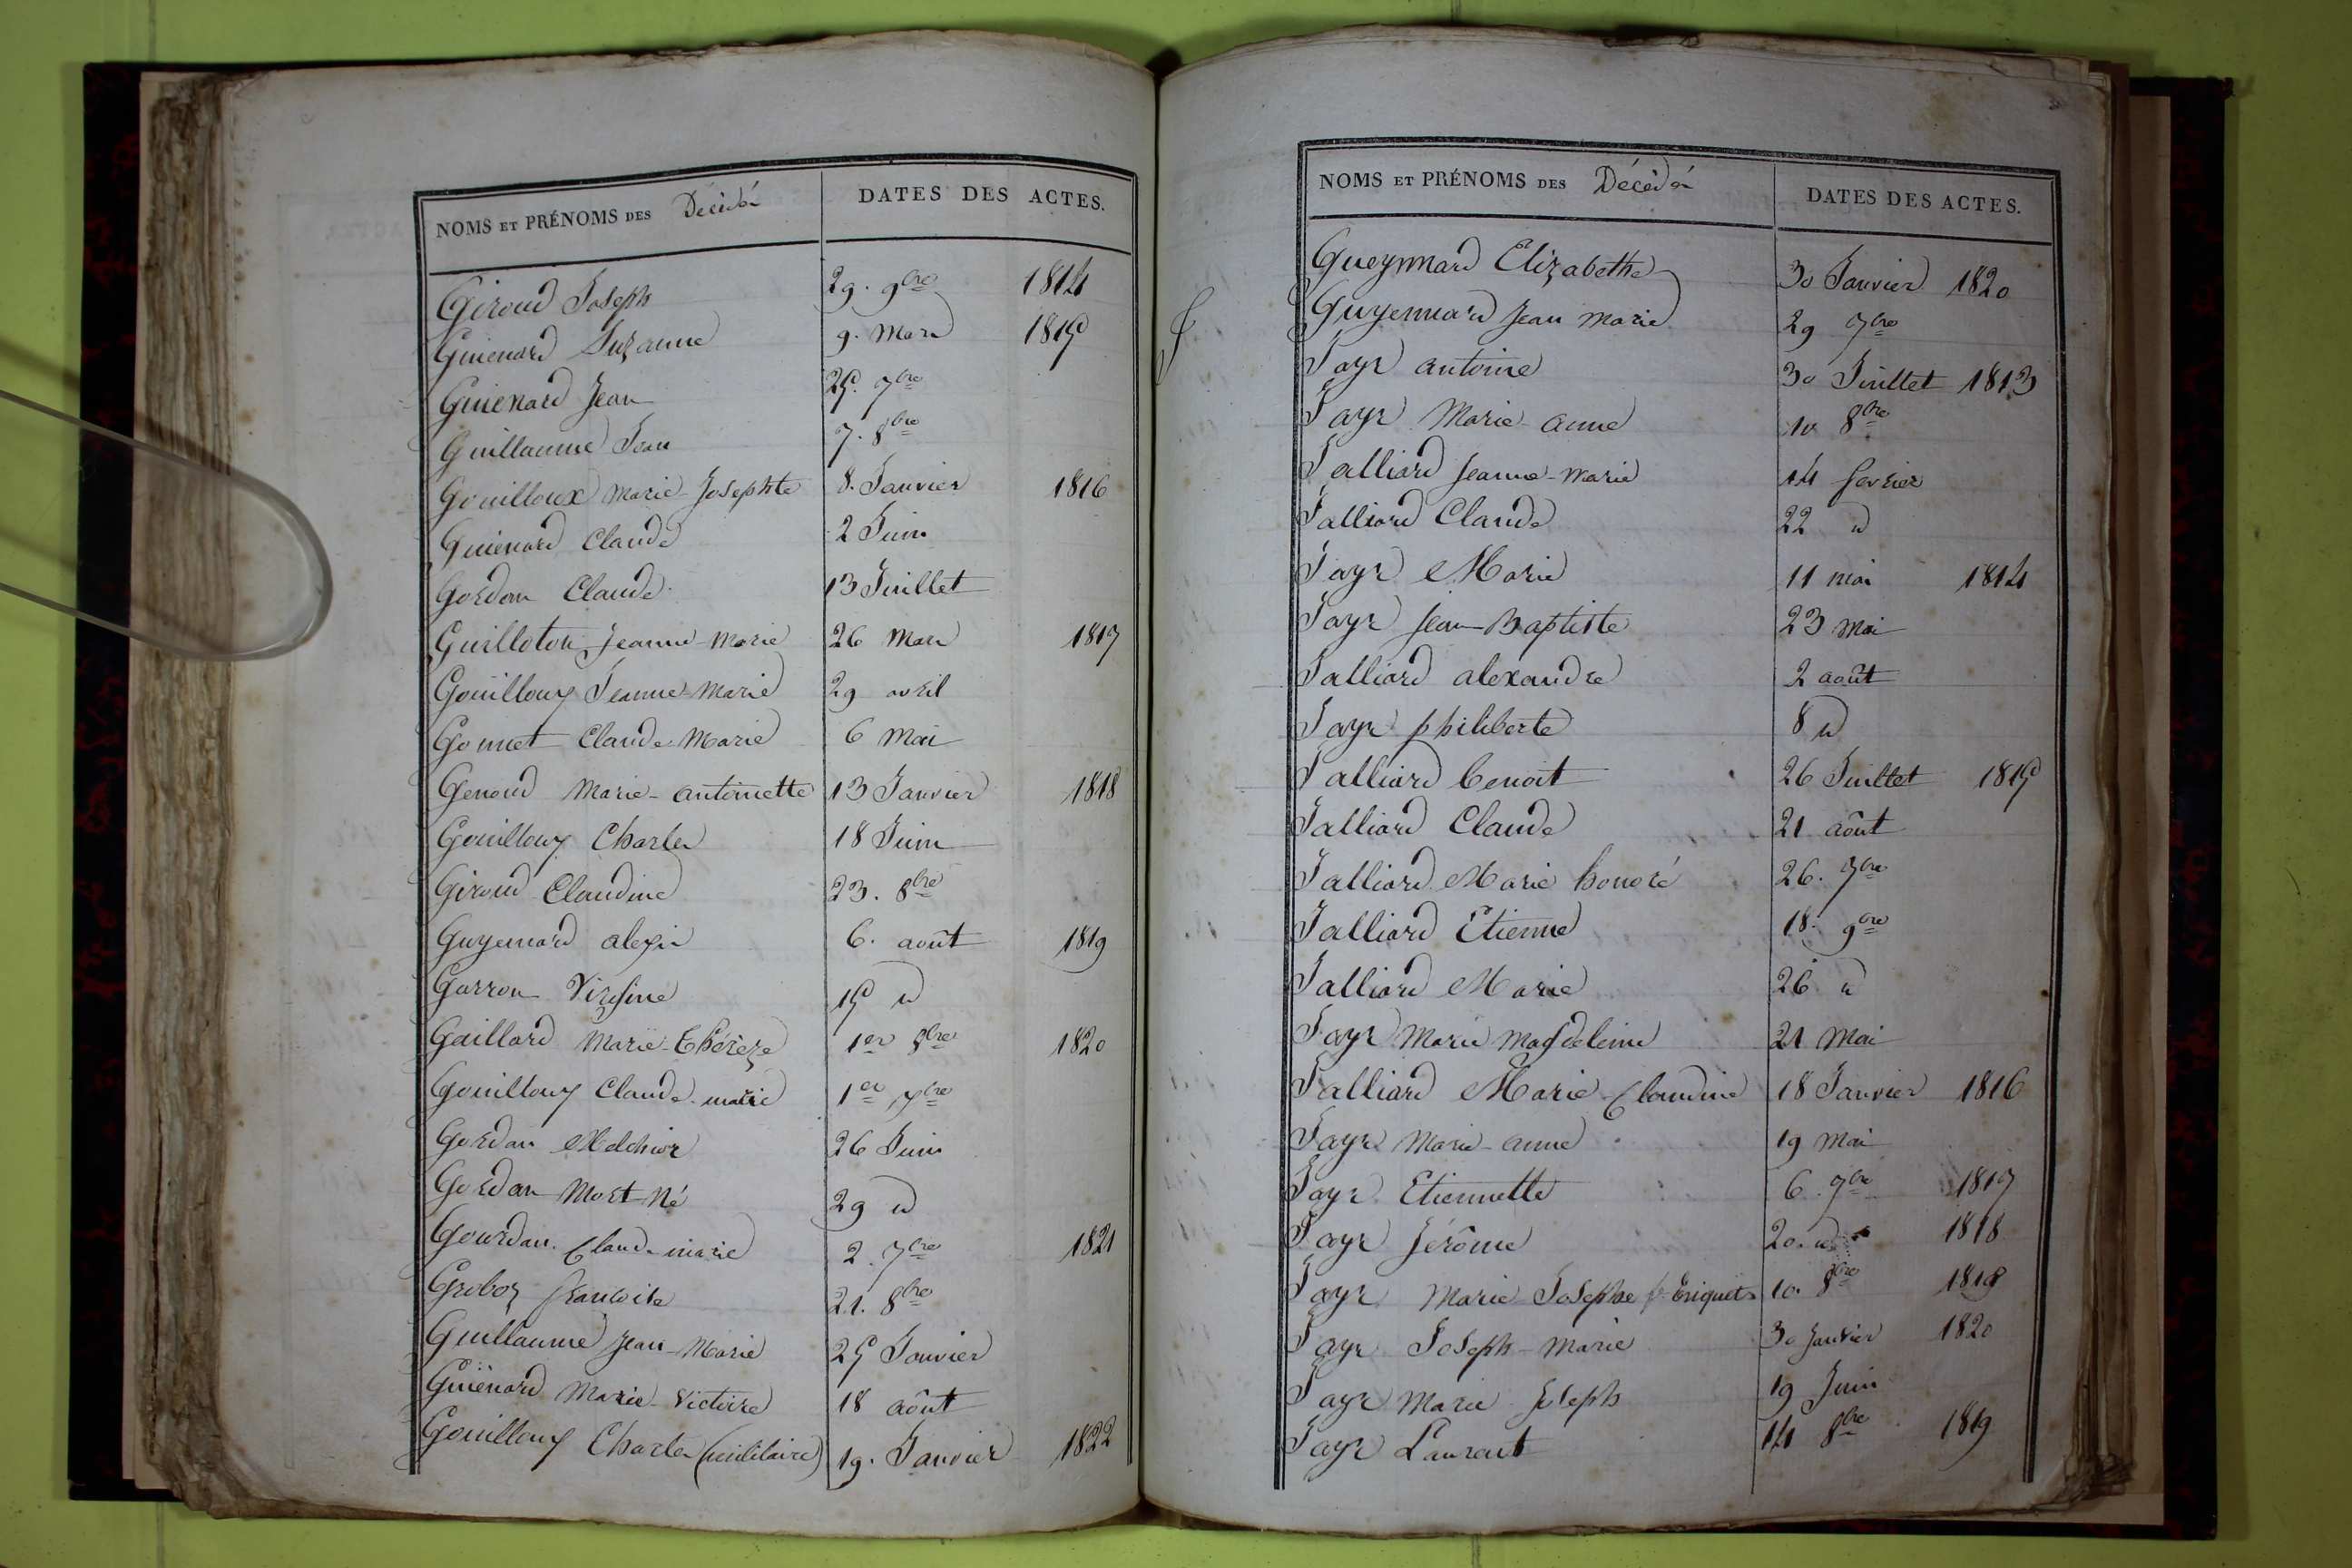 NOMS ET PRÉNOMS DES Décédés DATES DES ACTES.
Giroud Joseph 29. 9bre 1814
Guienard Suzanne 9. Mars 1815
Guienard Jean 25. 7bre
Guillaume Jean 7. 8bre
Gouilloux Marie-Josephte 8. Janvier 1816
Guienard Claude 2 Juin
Gordan Claude 13 Juillet
Guilloton Jeanne-Marie 26 Mars 1817
Gouilloux Jeanne-Marie 29 avril
Gonnet Claude Marie 6 Mai
Genoud Marie-antoinette 13 Janvier 1818
Gouilloux Charles 18 Juin
Giroud Claudine 23. 8bre
Guyennard alexis 6. août 1819
Garron Virgine 15 d
Gaillard Marie-Thérèze 1er 8bre 1820
Gouilloux Claude-marie 1er 7bre
Gordan Melchior 26 Juin
Gordan Mort-Né 29 d
Gourdan Claude-marie 2. 7bre 1821
Groboz francoise 21. 8bre
Guillaume Jean-Marie 25 Janvier
Guïenard Marie-Victoire 18 août
Gouilloux Charles (militaire) 19. Janvier 1822
NOMS ET PRÉNOMS DES Décédés DATES DES ACTES.
Gueynnard Elizabethe 30 Janvier 1820
Guyennard Jean Marie 29 7bre
J
Jayr antoine 30 Juillet 1813
Jayr Marie-anne 10 8bre
Jalliard Jeanne-Marie 14 fevrier
Jalliard Claude 22 d
Jayr Marie 11 mai 1814
Jayr Jean-Baptiste 23 Mai
Jalliard alexandre 2 août
Jayr philiberte 8 d
Jalliard benoit 26 Juillet 1815
Jalliard Claude 21 août
Jalliard Marie honoré 26. 7bre
Jalliard Etienne 18. 9bre
Jalliard Marie 26 d
Jayr Marie Magdeleine 21 Mai
Jalliard Marie-Claudine 18 Janvier 1816
Jayr Marie-anne 19 Mai
Jayr Etiennette 6 7bre 1817
Jayr Jérôme 20. d 1818
Jayr Marie-Josephe fe Eriquet 10. 8bre 1818
Jayr Joseph-Marie 30 Janvier 1820
Jayr Marie Joseph 19 Juin
Jayr Laurent 14 8bre 1819